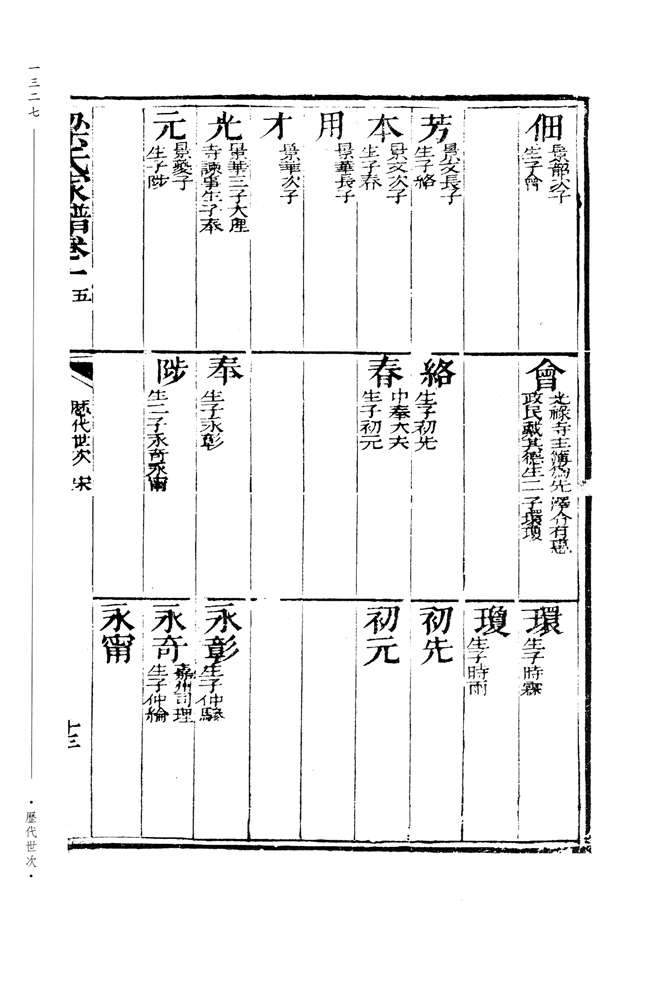 佃
景部次子
生子會
芳
景文長子
生子絡
本
景文次子
生子春
用
景華長子
才
景華次子
光
景華三子大理
寺諫事生子奉
元
景燮子
生子陟
會
光祿寺主簿
政民戴其德生二子環瓊
絡
生子初先
春
中奉大夫
生子初元
奉
生子永彰
陟
生二子永奇永甯
環
生子時霖
瓊
生子時雨
初先
初元
永彰
生子仲驂
永奇
嘉州司理
生子仲綸
永甯
梁氏家譜卷一 五
歷代世次 宋
十三
一三二七
·歷代世次·